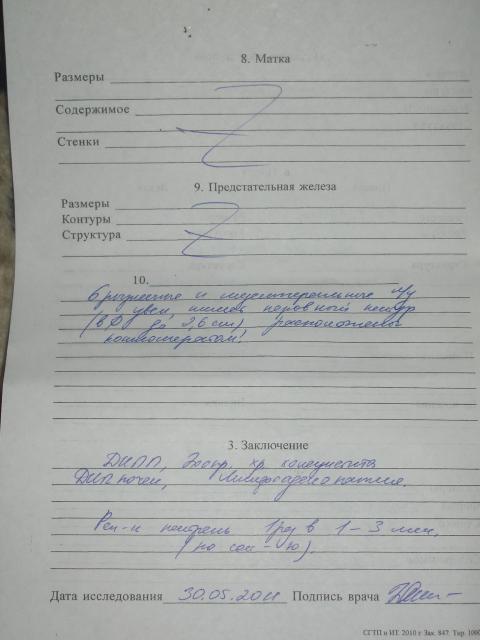 8. Матка
Размеры
Содержимое
Стенки
9. Предстательная железа
Размеры
Контуры
Структура
10.
Брызжеечные и мезентеральные л/у
увел, имеют неровный контур
(в Ф до 2,6 см), расположены
конгломератом.
3. Заключение
ДИПП, Эхопр. хр. холецистита
ДИП почек, Лимфоаденопатия.
Рек-н контроль 1 раз в 1-3 мес.
Дата исследования 30.05.2011 Подпись врача
СГТП и ИТ. 2010 г. Зак. 847. Тир.